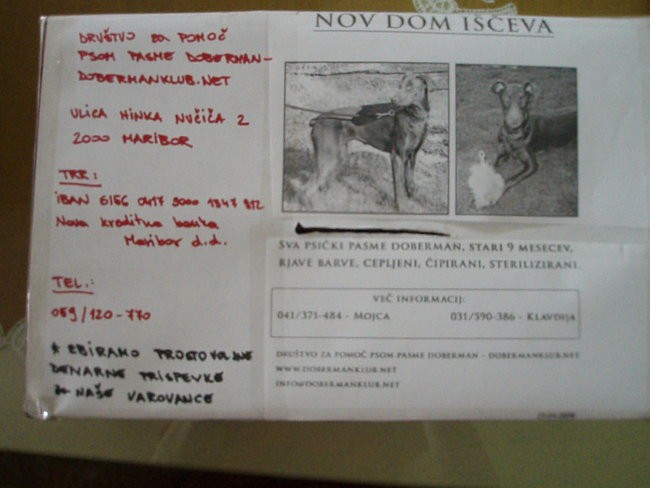 DRUŠTVO ZA POMOČ
PSOM PASME DOBERMAN-
DOBERMANKLUB.NET
ULICA HINKA NUČIČA 2
2000 MARIBOR
TRR:
IBAN SI56 0417 3000 1847 812
Nova kreditna banka
Maribor d.d.
TEL.:
059/120-770
* ZBIRAMO PROSTOVOLJNE
DENARNE PRISPEVKE
ZA NAŠE VAROVANCE
NOV DOM IŠČEVA
SVA PSIČKI PASME DOBERMAN, STARI 9 MESECEV,
RJAVE BARVE, CEPLJENI, ČIPIRANI, STERILIZIRANI.
VEČ INFORMACIJ:
041/371-484 - MOJCA 031/390-386 - KLAVDIJA
DRUŠTVO ZA POMOČ PSOM PASME DOBERMAN - DOBERMANKLUB.NET
WWW.DOBERMANKLUB.NET
INFO@DOBERMANKLUB.NET